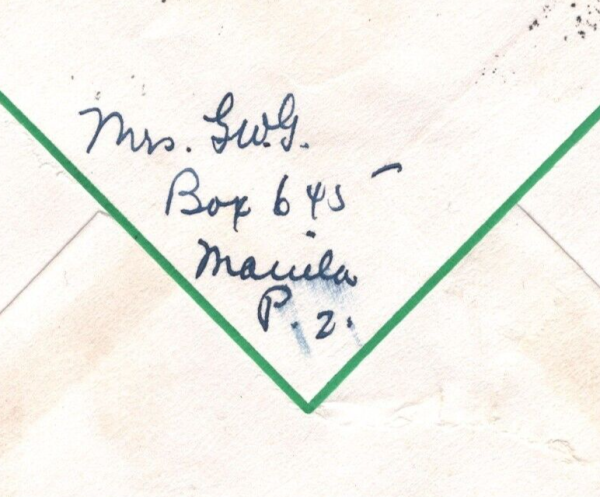 Mrs. G.W.G.
Box 645
Manila
P. I.